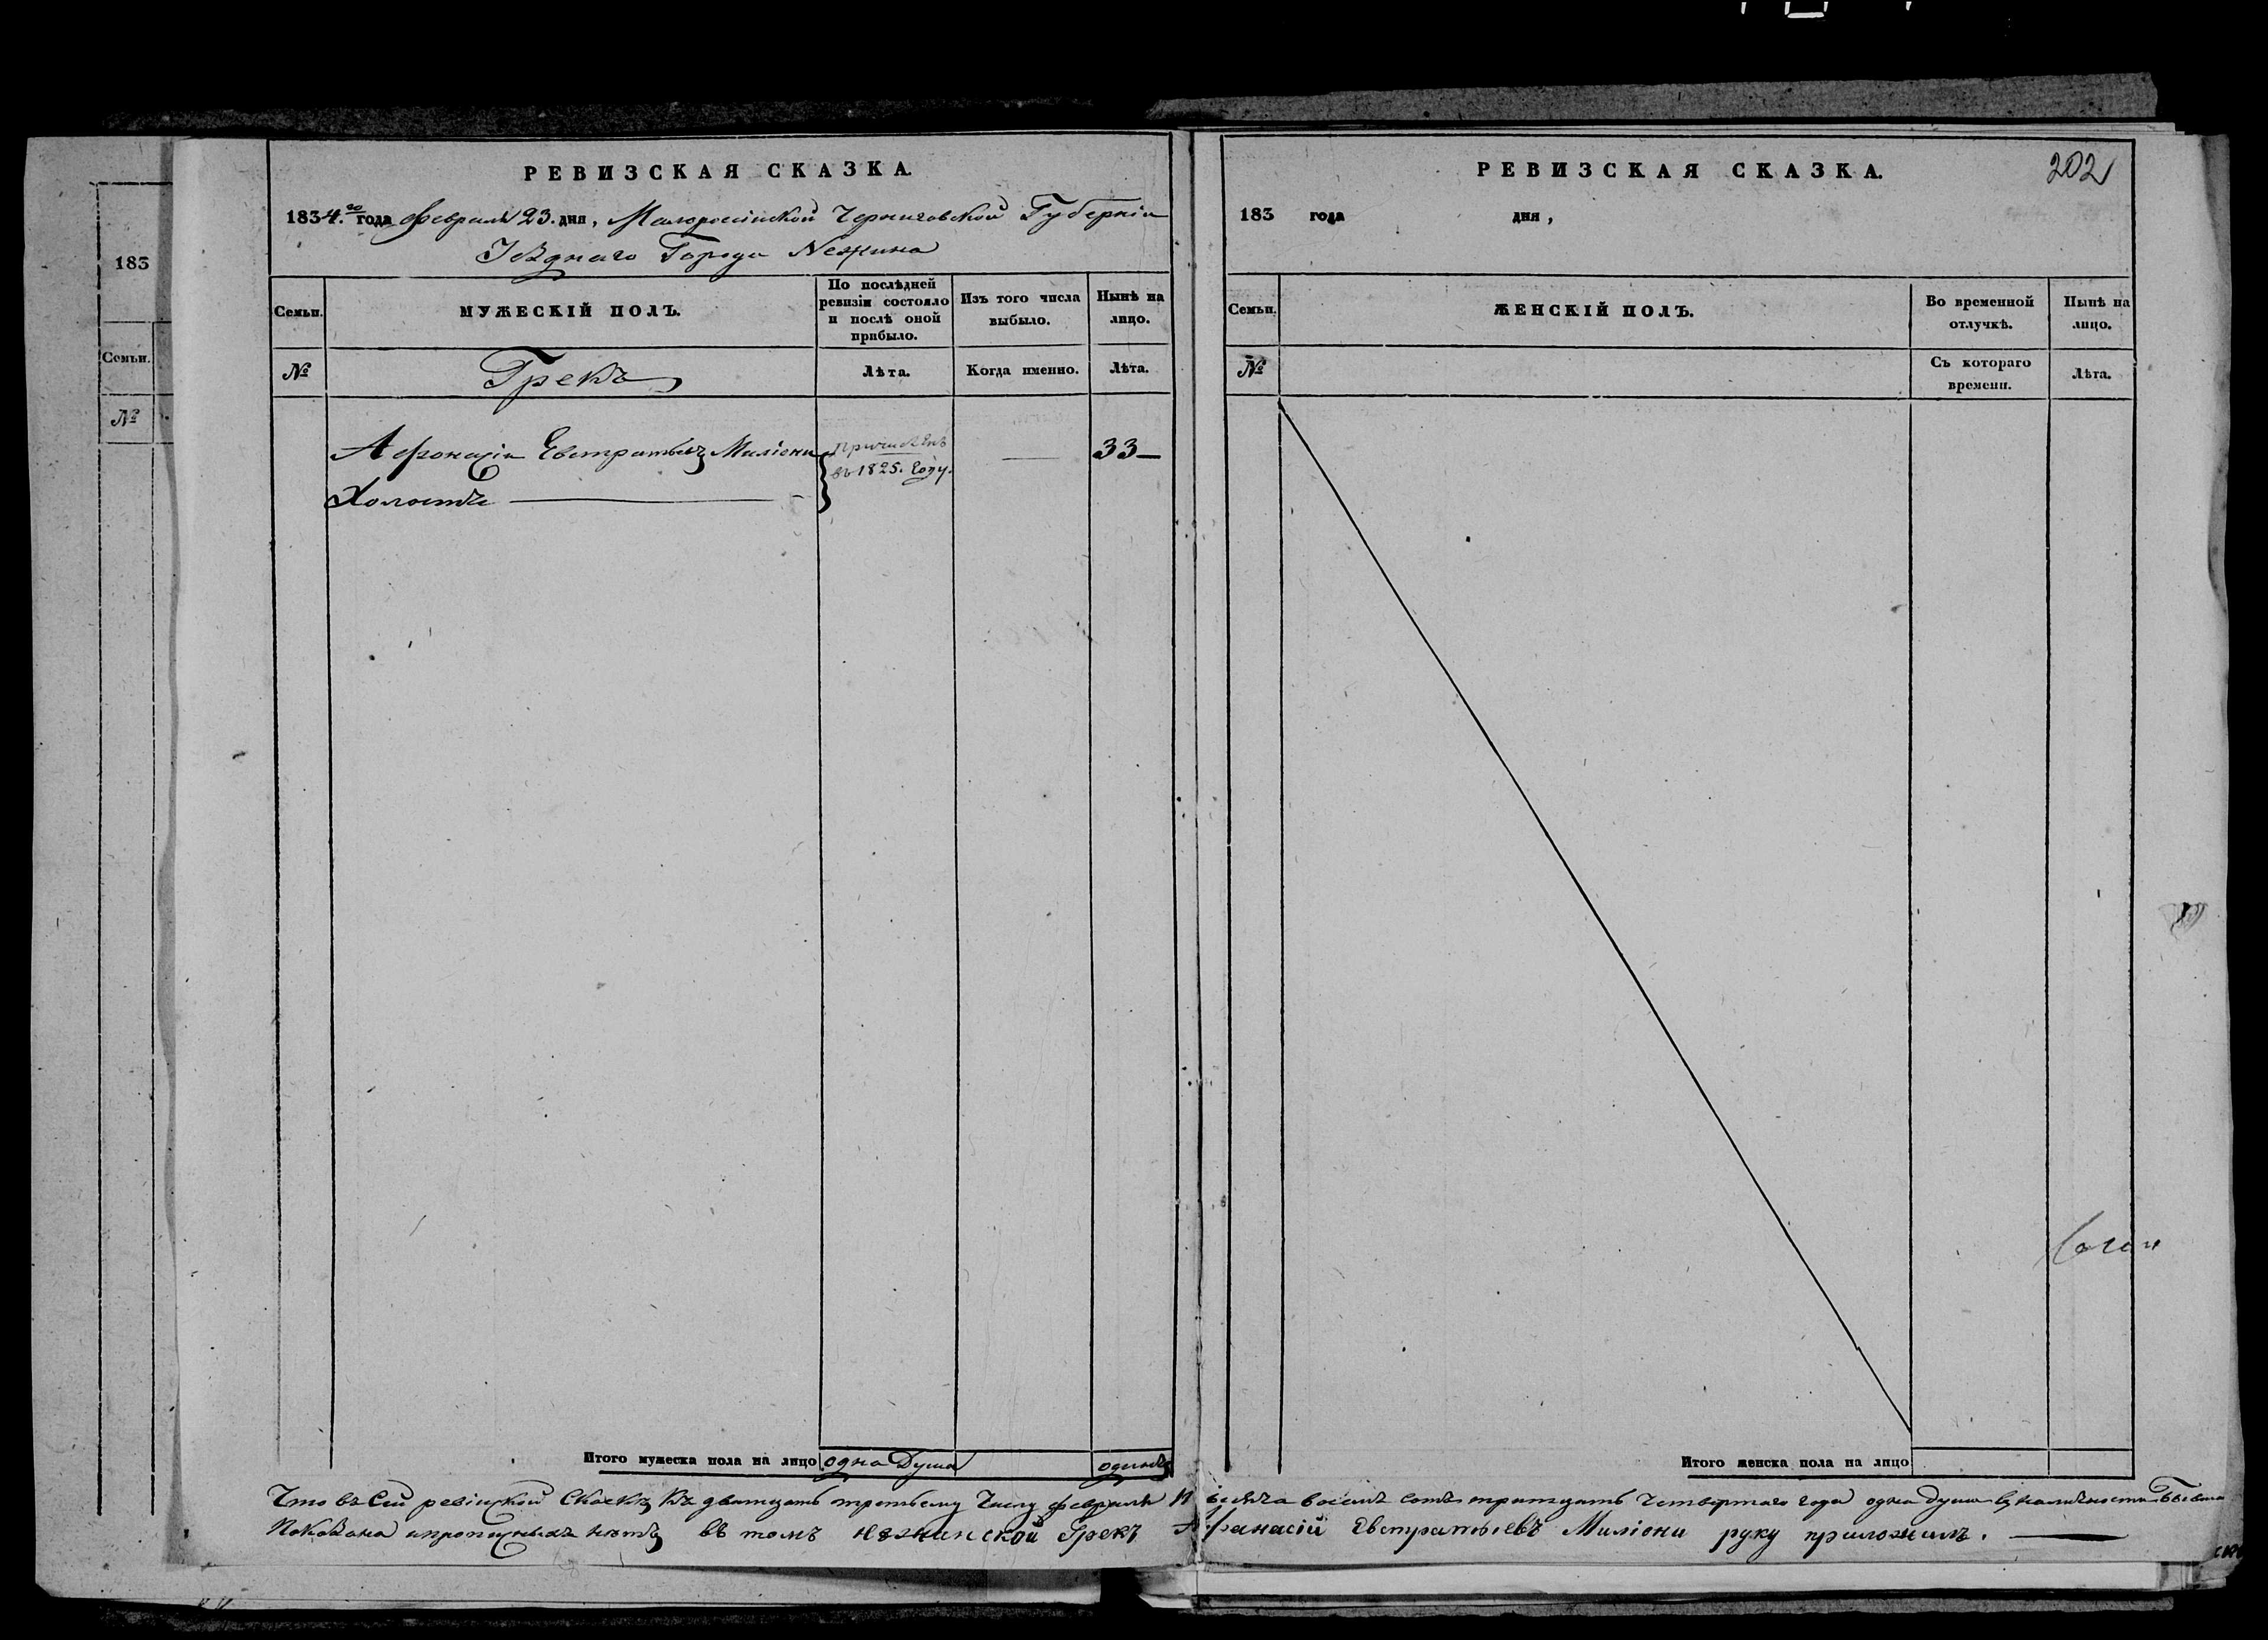 РЕВИЗСКАЯ СКАЗКА.
1834.го года Февраля 23. дня, Малоросійской Черниговской Губерніи
Уѣзднаго Города Нежина
Семьи.
МУЖЕСКІЙ ПОЛЪ.
По послѣдней ревизіи состояло и послѣ оной прибыло.
Изъ того числа выбыло.
Нынѣ на лицо.
№
Грекъ
Лѣта.
Когда именно.
Лѣта.
Афонасій Евстратьевъ Миліони
Причисленъ
въ 1825. году.
33
Холостъ
Итого мужеска пола на лицо
одна душа
одинъ
РЕВИЗСКАЯ СКАЗКА.
202
183 года дня,
Семьи.
ЖЕНСКІЙ ПОЛЪ.
Во временной отлучкѣ.
Нынѣ на лицо.
№
Съ котораго времени.
Лѣта.
Итого женска пола на лицо
Что въ сей ревізской Сказкѣ къ дватцать третьему Числу февраля восемъ сотъ тритцать Четвертаго года одна душа въ наличности
показана ипропущныхъ нѣтъ въ томъ нѣжинской Грекъ Афанасій Евстратьевъ Миліони руку приложилъ.
183
Семьи.
№